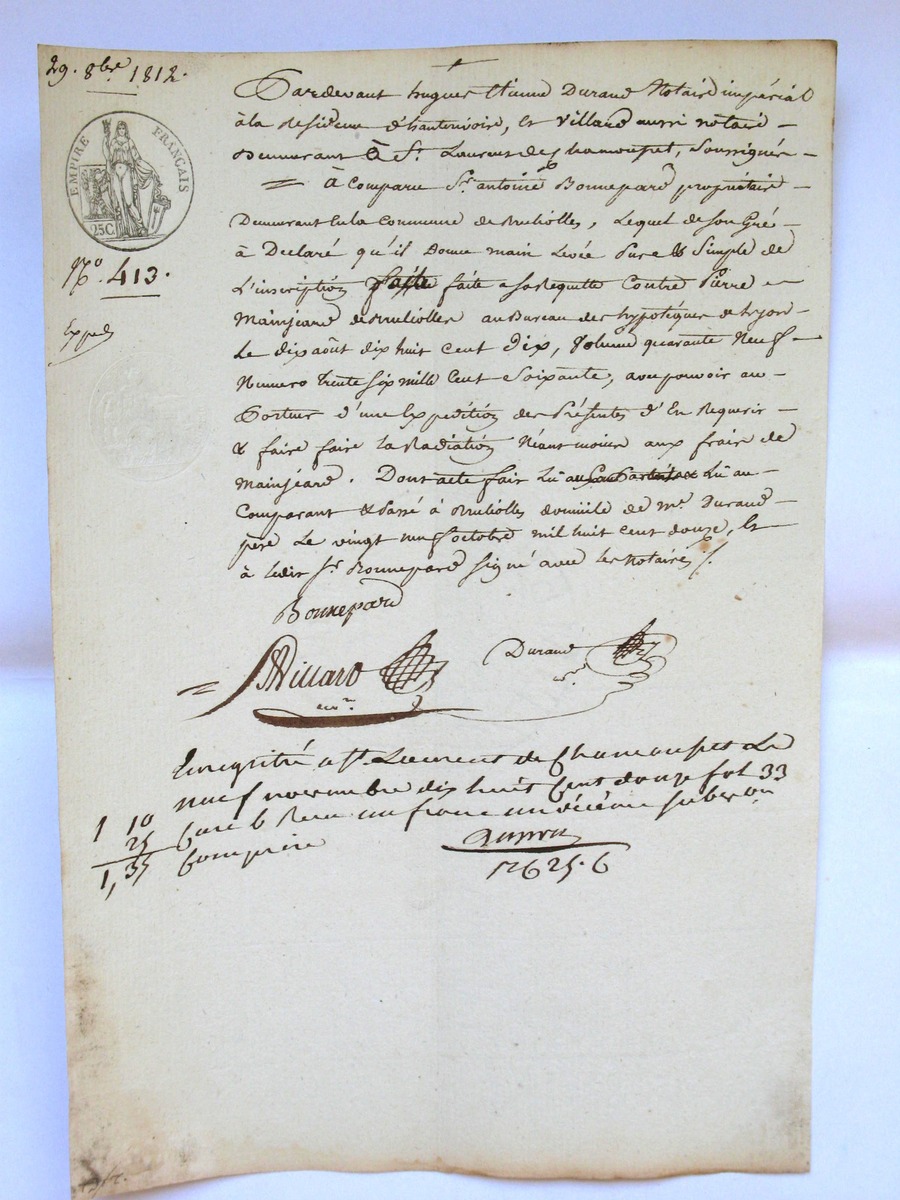 29. 8bre 1812.
EMPIRE FRANÇAIS
25C
No. 413.
Expedé
Pardevant hugues Etienne Durand Notaire impérial
à la Residence d'hauterivoire, Et Villard aussi notaire
Demeurant à St. Laurent de Chamousset, Soussignés
= à Comparu Sr. antoine Bonnepard propriétaire
Demeurant En la Commune de Brulliolles, Lequel de Son Gré
à Declaré qu'il Donne main Levée Pure & Simple de
L'inscription faite faite a sa Requette Contre Pierre
Mainjeard de Brulliolles au Bureau des hypotéques de Lyon
Le dix août dix huit Cent Dix, Volume quarante Neuf
Numero trente six mille Cent Soixante, avec pouvoir au
Porteur d'une Expedition des Présentes d'En Requerir
& faire faire la Radiation Néanmoins aux frais de
Mainjeard. Dont acte fait Lu au Lu au
Comparant & Passé à Brulliolles domicile de me. Durand
père Le vingt neuf octobre mil huit Cent douze, Et
à ledit Sr. Bonnepard signé avec les Notaires /.
Bonnepard
Villard
Durand
nre.
Enregistré a St. Laurent de Chamousset Le
neuf novembre dix huit Cent douze fol 33
Case 6 Reçu un franc un décime subvon
Comprise
1 10
25
1,35
12625.6